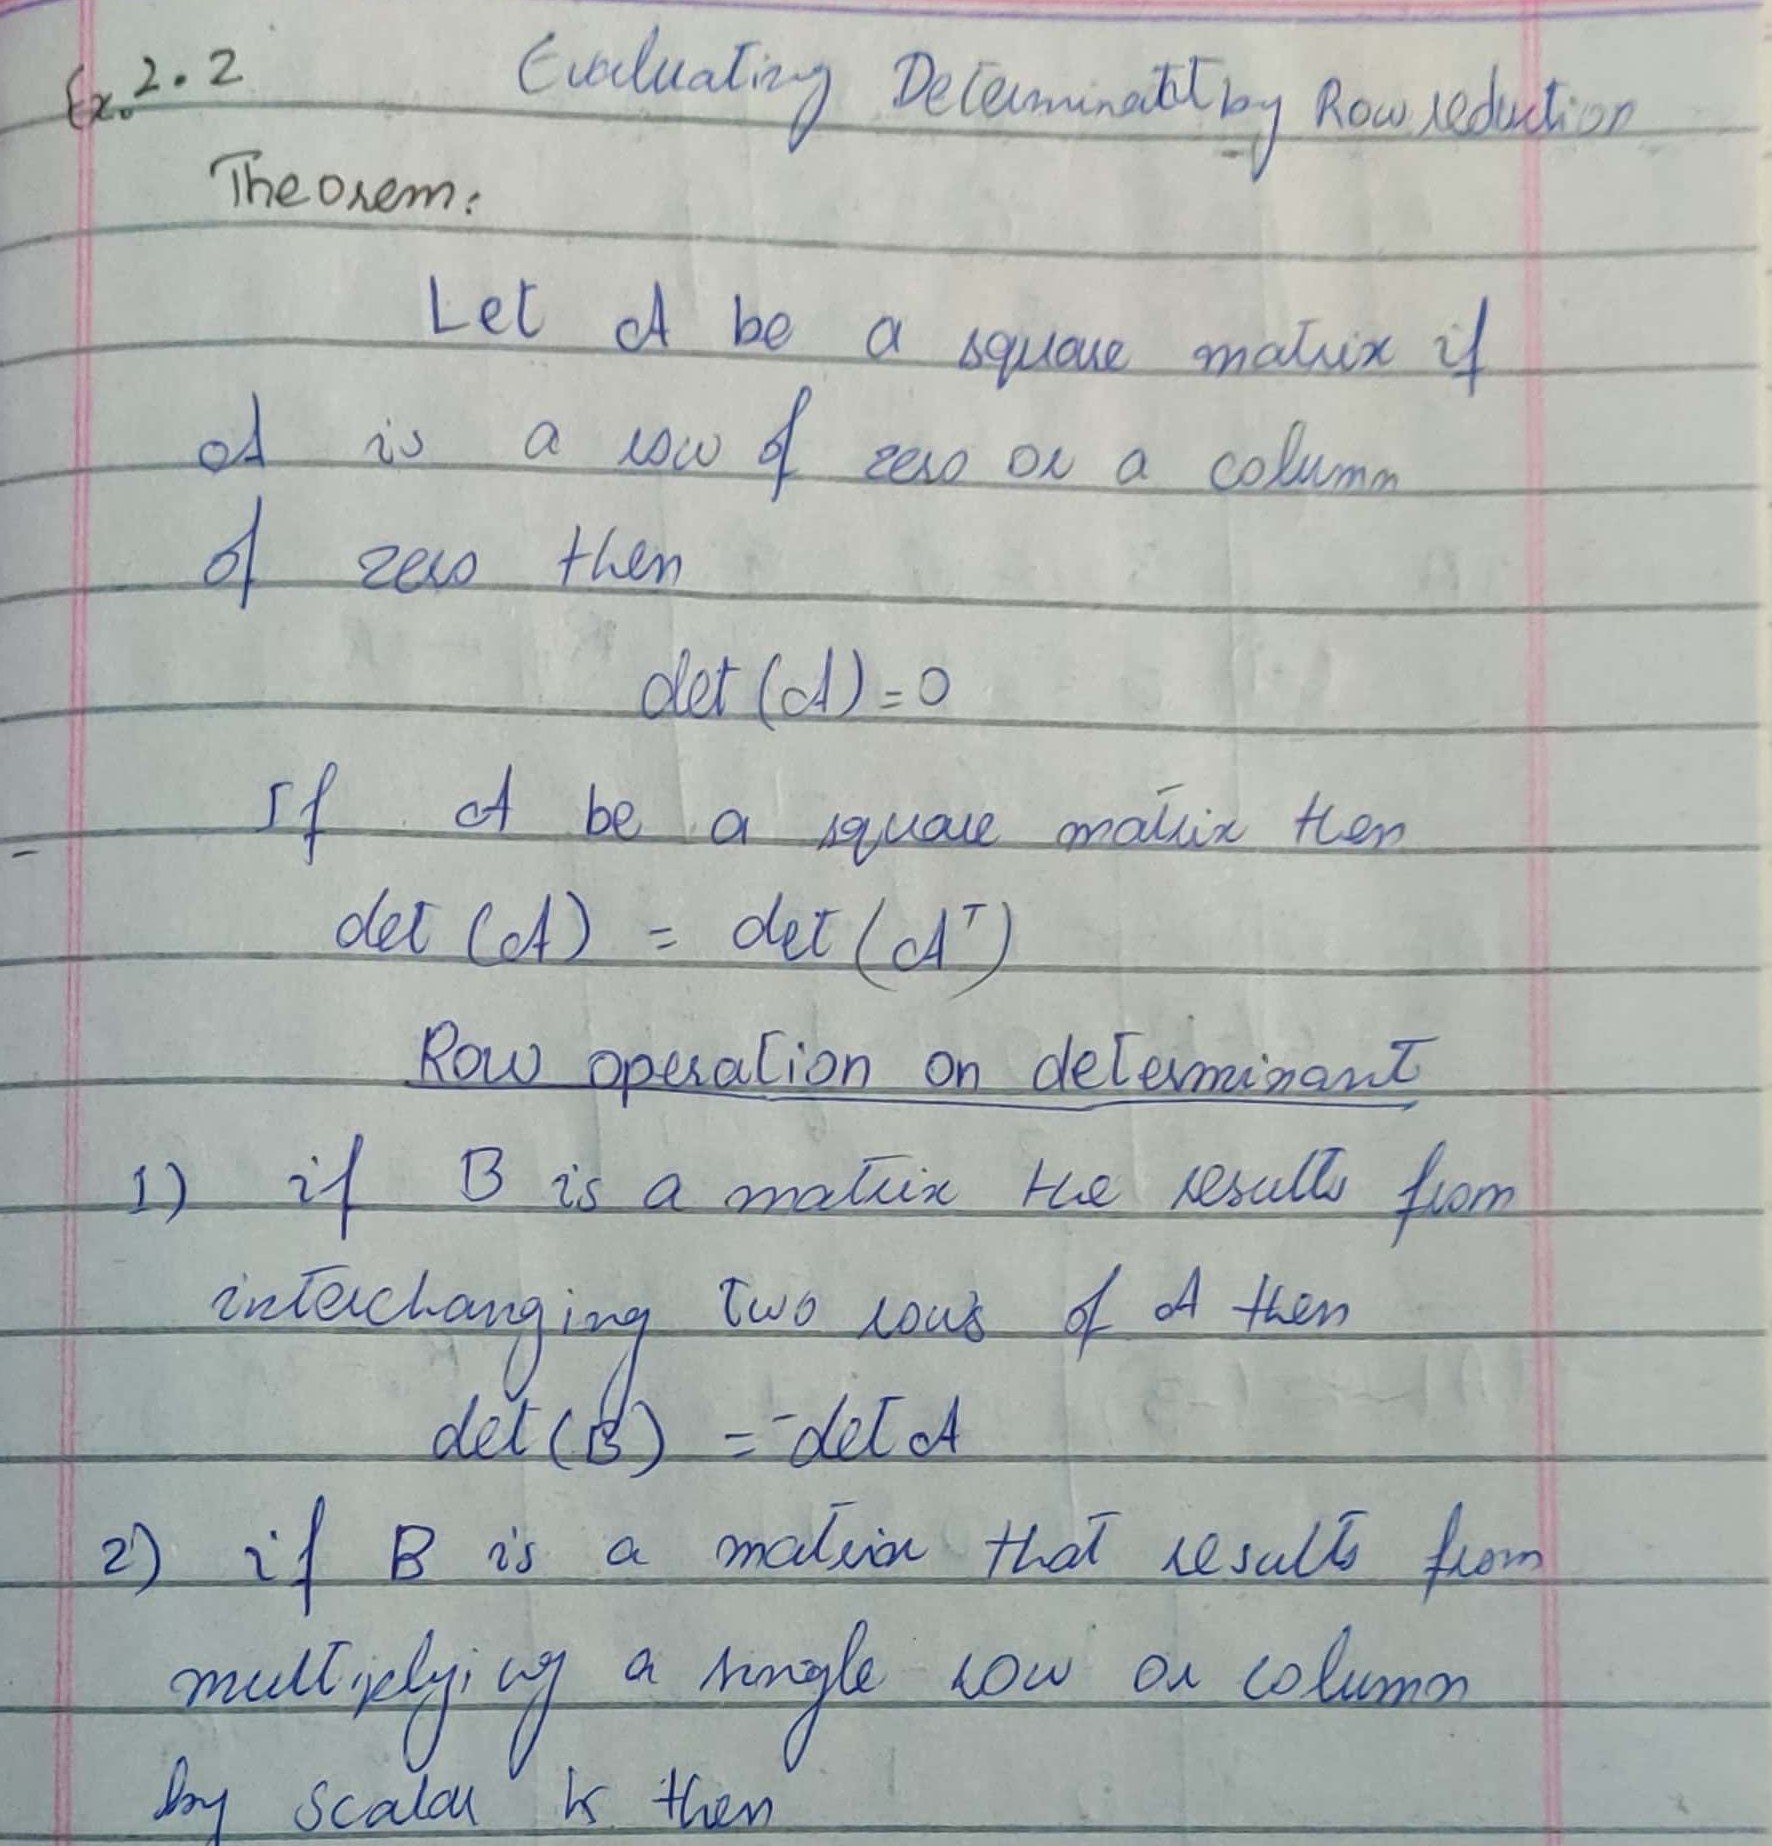 Ex. 2.2 Evaluating Determinatt by Row reduction
Theorem:
Let A be a square matrix if
A is a row of zero or a column
of zero then
det (A) = 0
If A be a square matrix then
det (A) = det (Aᵀ)
Row operation on determinant
1) if B is a matrix the results from
interchanging two rows of A then
det (B) = -det A
2) if B is a matrix that results from
multiplying a single row or column
by scalar k then